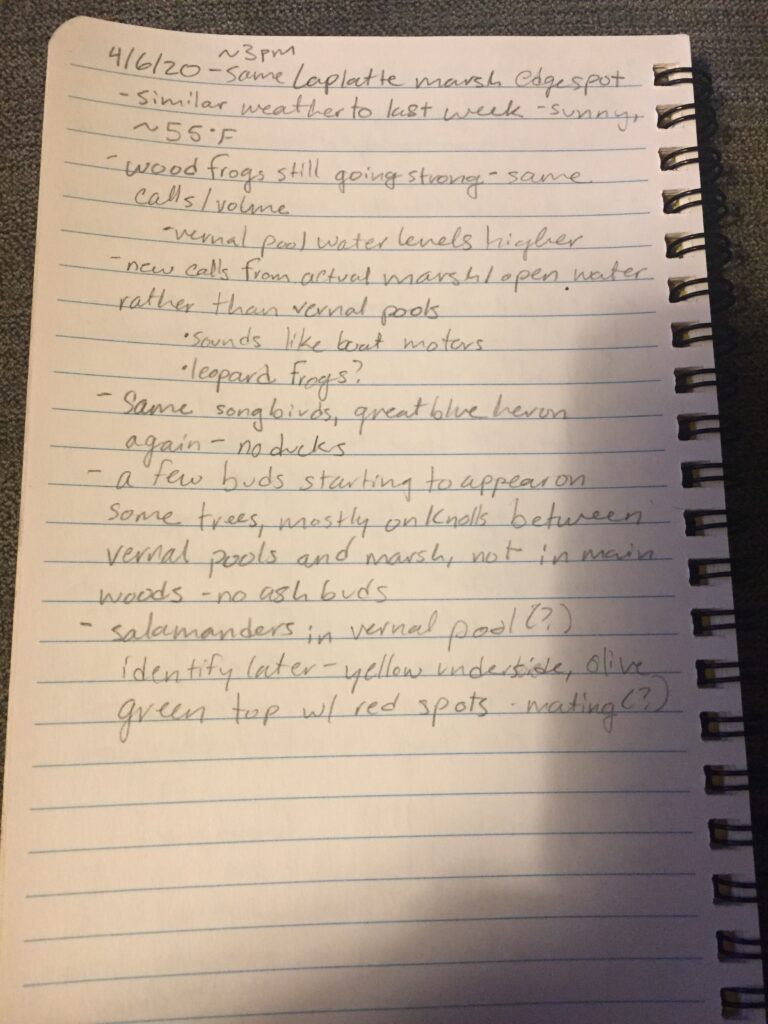 ~3pm
4/6/20 - Same Laplatte marsh edge spot
- Similar weather to last week - sunny,
~55°F
- wood frogs still going strong - same
calls/volme
- vernal pool water levels higher
- new calls from actual marsh/open water
rather than vernal pools
• sounds like boat motors
• leopard frogs?
- Same songbirds, great blue heron
again - no ducks
- a few buds starting to appear on
some trees, mostly on Knolls between
vernal pools and marsh, not in main
woods - no ash buds
- salamanders in vernal pool (?)
identify later - yellow underside, olive
green top w/ red spots - mating (?)